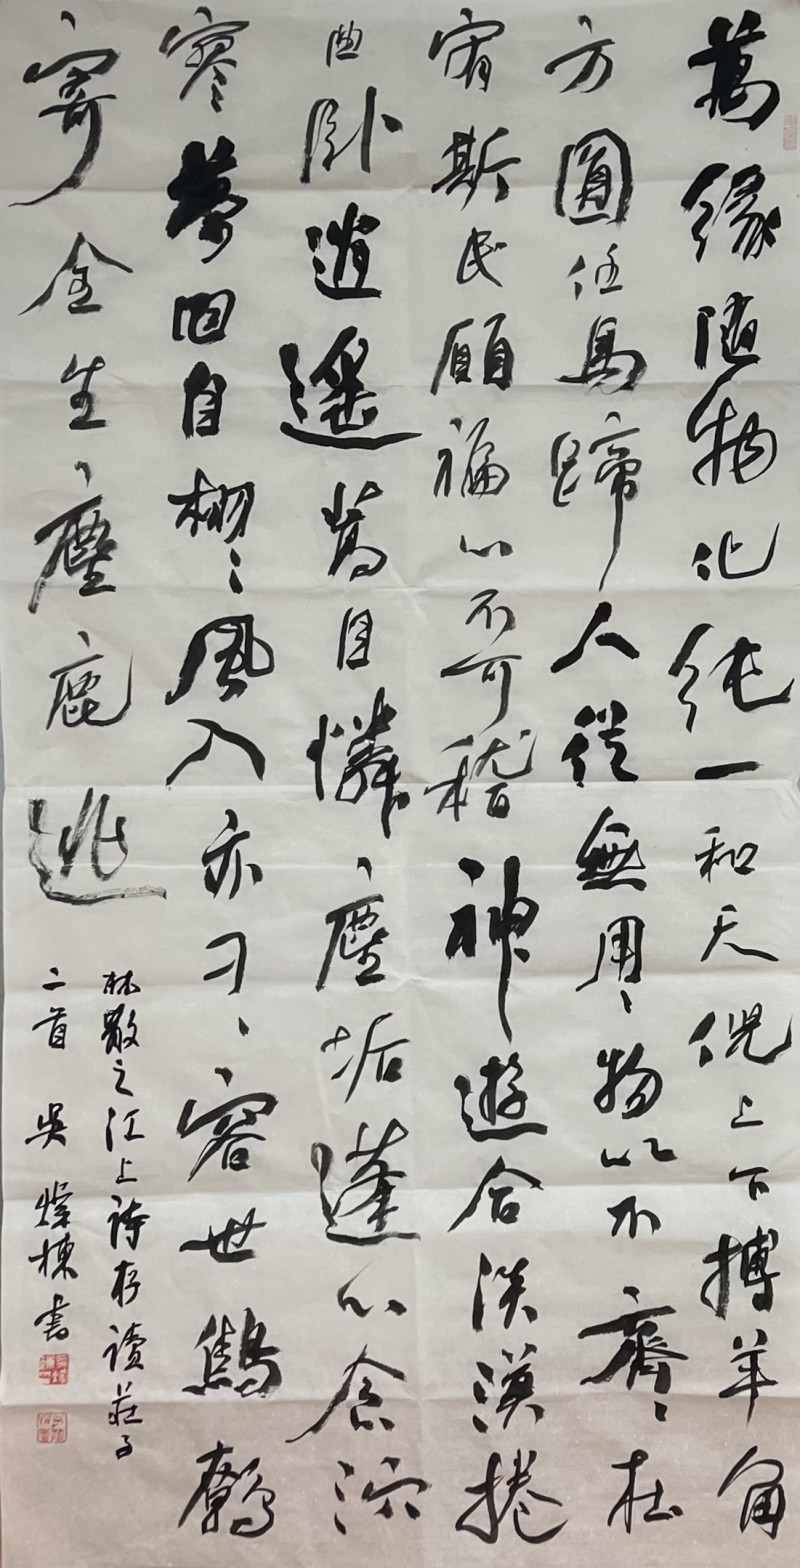 萬緣隨物化純一和天倪上下搏羊角
方圓任馬蹄人從無用用物以不齊齊在
宥斯民願福心不可稽神遊合淡漠捲
曲卧逍遙蒿目憐塵垢蓬心念泬
寥夢回自栩栩風入亦刁刁容世鷦鷯
寄全生麈鹿逃
林散之江上詩存讀莊子
二首 吳燦棟書